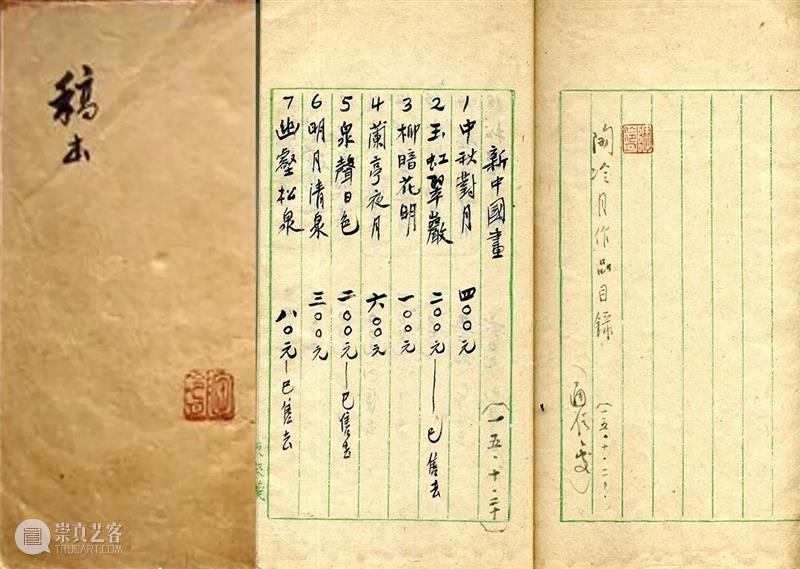 稿本
陶冷月作品目錄
(通信處)
新中國畫 (一五·十·二十)
1 中秋對月 四〇〇元
2 玉虹翠巖 二〇〇元—已售去
3 柳暗花明 一〇〇元
4 蘭亭夜月 六〇〇元
5 泉聲日色 二〇〇元—已售去
6 明月清泉 三〇〇元
7 幽壑松泉 八〇元—已售去
崇真艺客
TRUEART.COM